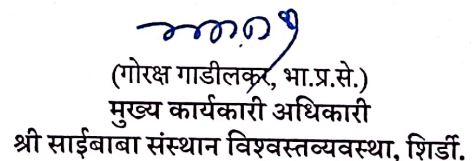 (गोरक्ष गाडीलकर, भा.प्र.से.)
मुख्य कार्यकारी अधिकारी
श्री साईबाबा संस्थान विश्वस्तव्यवस्था, शिर्डी.